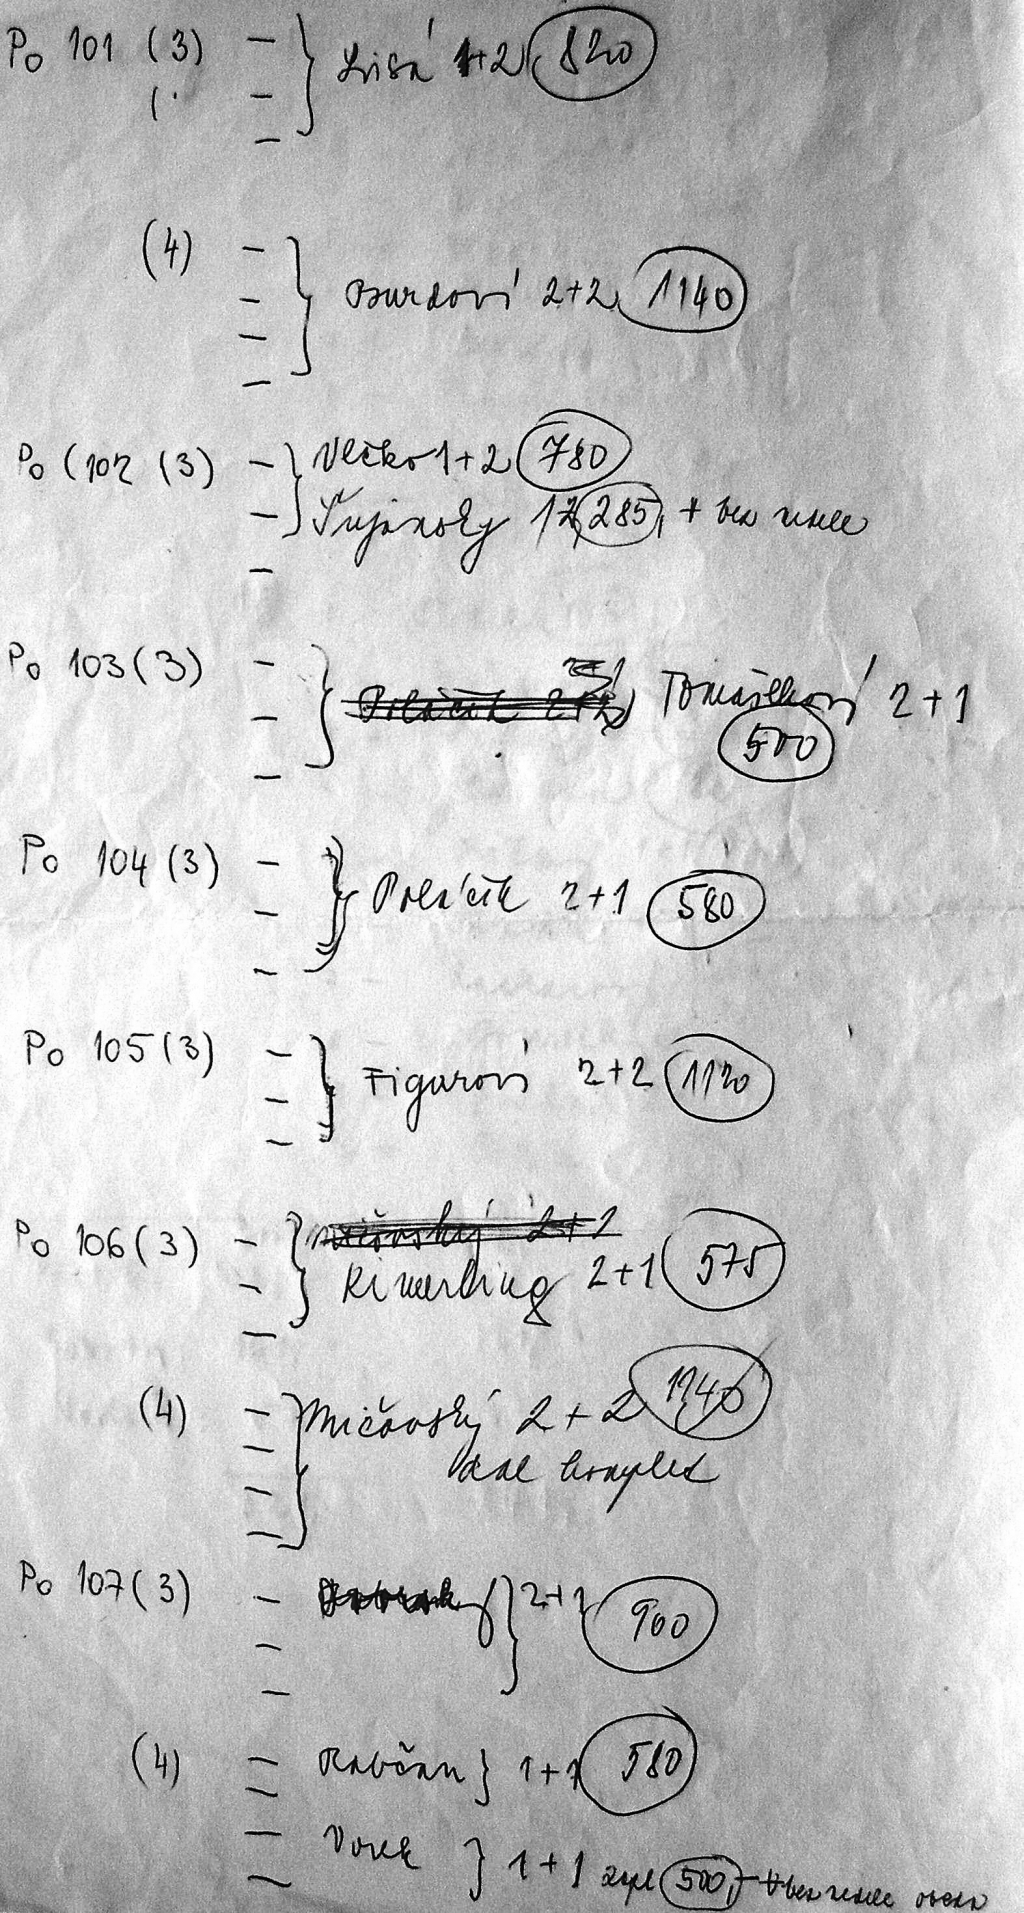 Po 101 (3) - } Lisá 1+2 820
(
(4) - } Burdoví 2+2 1140
Po (102 (3) - } Vlčko 1+2 780
- Šujanský 1 285,
Po 103 (3) - } Poláčik Tomaškoví 2+1
500
Po 104 (3) - } Poláčik 2+1 580
Po 105 (3) - } Figuroví 2+2 1120
Po 106 (3) - } Mičovský 2+1
Kimerling 2+1 575
(4) - } Mičovský 2+2 1140
dal komplet
Po 107 (3) - } 2+1 900
(4) - Rabčan } 1+1 580
- Vorek } 1+1 500,-